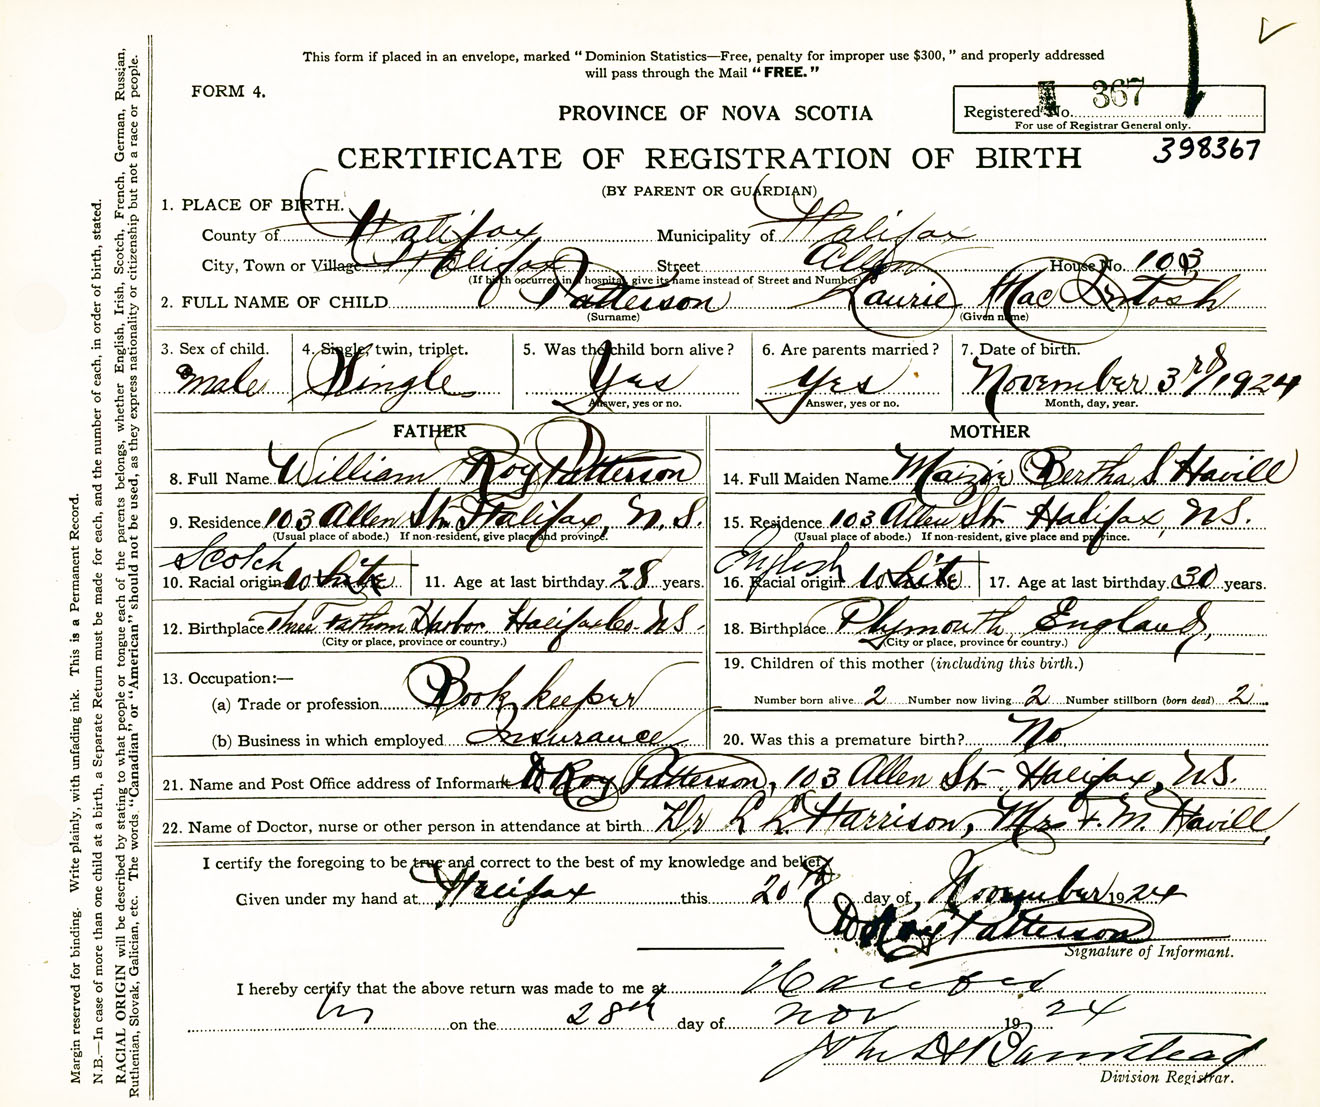 This form if placed in an envelope, marked “Dominion Statistics—Free, penalty for improper use $300,” and properly addressed
will pass through the Mail “FREE.”
FORM 4.
PROVINCE OF NOVA SCOTIA
Registered No. 367
For use of Registrar General only.
398367
CERTIFICATE OF REGISTRATION OF BIRTH
(BY PARENT OR GUARDIAN)
1. PLACE OF BIRTH.
County of Halifax Municipality of Halifax
City, Town or Village Halifax Street Allen House No. 103
(If birth occurred in a hospital, give its name instead of Street and Number)
2. FULL NAME OF CHILD Patterson Laurie MacIntosh
(Surname) (Given name)
3. Sex of child. 4. Single, twin, triplet. 5. Was the child born alive? 6. Are parents married? 7. Date of birth.
male Single Yes Yes November 3rd/1924
Answer, yes or no. Answer, yes or no. Month, day, year.
FATHER
8. Full Name William Roy Patterson
9. Residence 103 Allen Str. Halifax, N.S.
(Usual place of abode.) If non-resident, give place and province.
Scotch
10. Racial origin White 11. Age at last birthday 28 years.
12. Birthplace Three Fathom Harbor Halifax Co. N.S.
(City or place, province or country.)
13. Occupation:—
(a) Trade or profession Book keeper
(b) Business in which employed Insurance
MOTHER
14. Full Maiden Name Maizie Bertha S. Havill
15. Residence 103 Allen Str Halifax, N.S.
(Usual place of abode.) If non-resident, give place and province.
English
16. Racial origin White 17. Age at last birthday 30 years.
18. Birthplace Plymouth, England,
(City or place, province or country.)
19. Children of this mother (including this birth.)
Number born alive 2 Number now living 2 Number stillborn (born dead) 2
20. Was this a premature birth? No
21. Name and Post Office address of Informant W Roy Patterson, 103 Allen Str. Halifax, N.S.
22. Name of Doctor, nurse or other person in attendance at birth Dr L L Harrison, Mrs F. M. Havill,
I certify the foregoing to be true and correct to the best of my knowledge and belief.
Given under my hand at Halifax this 20th day of November 1924
W Roy Patterson
Signature of Informant.
I hereby certify that the above return was made to me at Halifax
on the 28th day of Nov 1924
John H Barnstead
Division Registrar.
Margin reserved for binding. Write plainly, with unfading ink. This is a Permanent Record.
N.B.—In case of more than one child at a birth, a Separate Return must be made for each, and the number of each, in order of birth, stated.
RACIAL ORIGIN will be described by stating to what people or tongue each of the parents belongs, whether English, Irish, Scotch, French, German, Russian,
Ruthenian, Slovak, Galician, etc. The words “Canadian” or “American” should not be used, as they express nationality or citizenship but not a race or people.